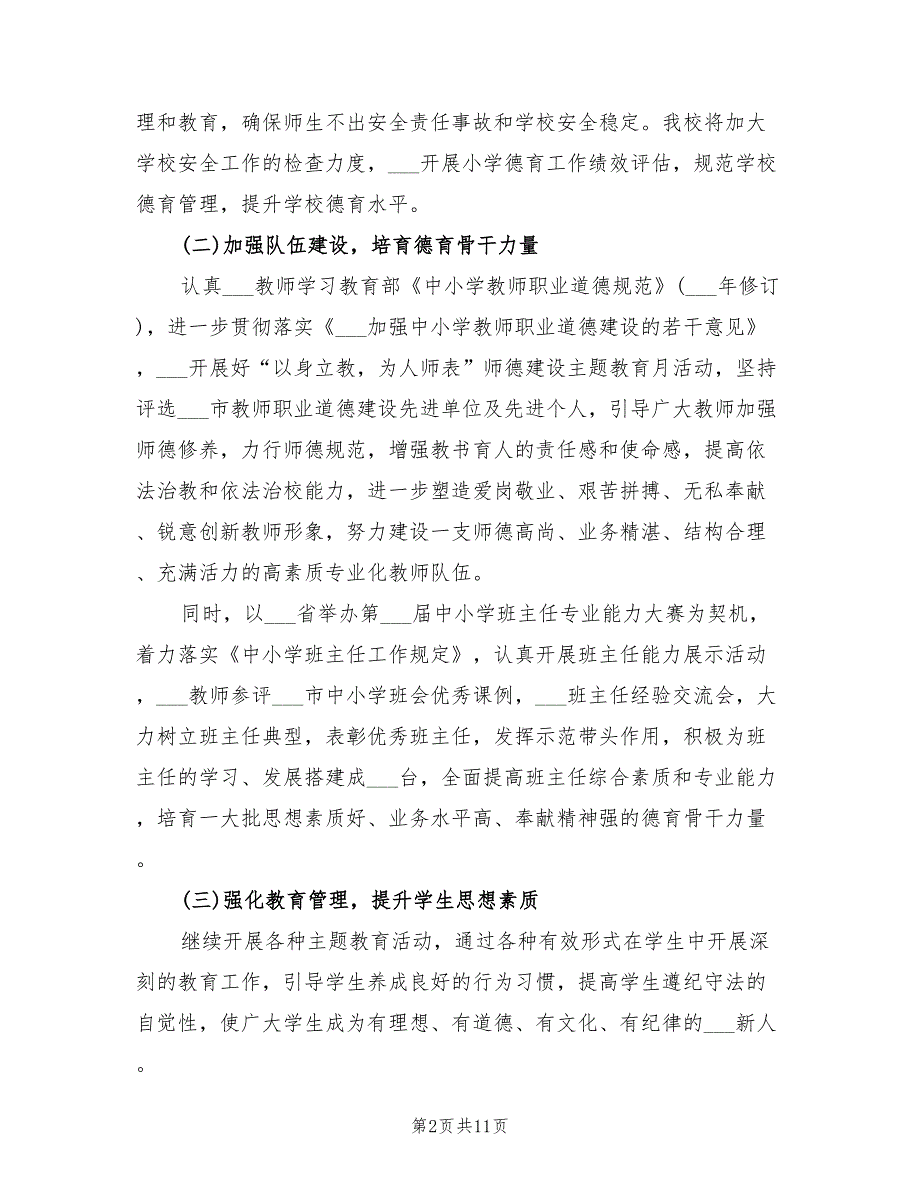 理和教育，确保师生不出安全责任事故和学校安全稳定。我校将加大
学校安全工作的检查力度，___开展小学德育工作绩效评估，规范学校
德育管理，提升学校德育水平。
(二)加强队伍建设，培育德育骨干力量
认真___教师学习教育部《中小学教师职业道德规范》(___年修订
)，进一步贯彻落实《___加强中小学教师职业道德建设的若干意见》
，___开展好“以身立教，为人师表”师德建设主题教育月活动，坚持
评选___市教师职业道德建设先进单位及先进个人，引导广大教师加强
师德修养，力行师德规范，增强教书育人的责任感和使命感，提高依
法治教和依法治校能力，进一步塑造爱岗敬业、艰苦拼搏、无私奉献
、锐意创新教师形象，努力建设一支师德高尚、业务精湛、结构合理
、充满活力的高素质专业化教师队伍。
同时，以___省举办第___届中小学班主任专业能力大赛为契机，
着力落实《中小学班主任工作规定》，认真开展班主任能力展示活动
，___教师参评___市中小学班会优秀课例，___班主任经验交流会，大
力树立班主任典型，表彰优秀班主任，发挥示范带头作用，积极为班
主任的学习、发展搭建成___台，全面提高班主任综合素质和专业能力
，培育一大批思想素质好、业务水平高、奉献精神强的德育骨干力量
。
(三)强化教育管理，提升学生思想素质
继续开展各种主题教育活动，通过各种有效形式在学生中开展深
刻的教育工作，引导学生养成良好的行为习惯，提高学生遵纪守法的
自觉性，使广大学生成为有理想、有道德、有文化、有纪律的___新人
。
第2页共11页